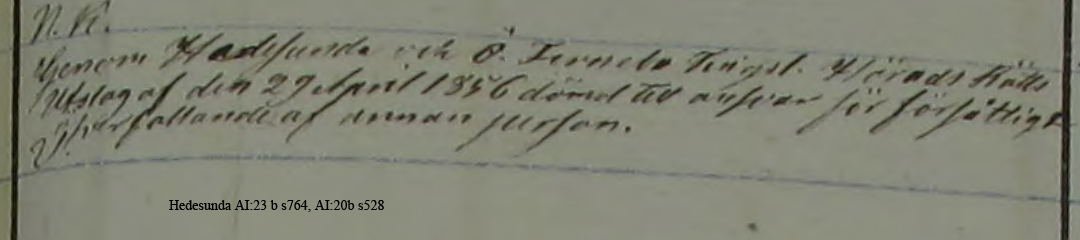 N. K.
Genom Hedesunda och Ö. Fernebo Tingsl. Härads Rätts
Utslag af den 29 April 1856 dömd till ansvar för försåtligt
öfverfallande af annan person.
Hedesunda AI:23 b s764, AI:20b s528